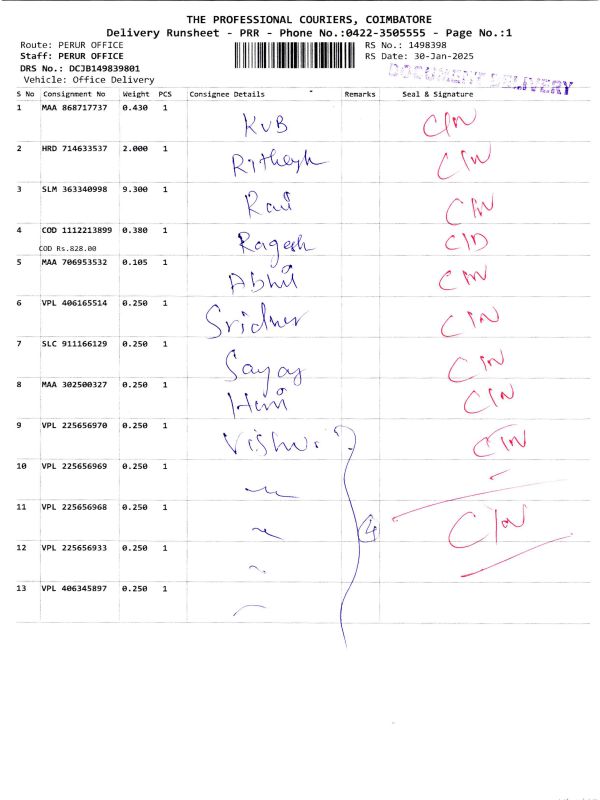 THE PROFESSIONAL COURIERS, COIMBATORE
Delivery Runsheet - PRR - Phone No.:0422-3505555 - Page No.:1
Route: PERUR OFFICE RS No.: 1498398
Staff: PERUR OFFICE RS Date: 30-Jan-2025
DRS No.: DCJB149839801 DOCUMENT DELIVERY
Vehicle: Office Delivery
S No Consignment No Weight PCS Consignee Details Remarks Seal & Signature
1 MAA 868717737 0.430 1 KVB C/N
2 HRD 714633537 2.000 1 Rithesh C/N
3 SLM 363340998 9.300 1 Ravi C/N
4 COD 1112213899 0.380 1 Ragesh C/D
COD Rs.828.00
5 MAA 706953532 0.105 1 Abhil C/N
6 VPL 406165514 0.250 1 Sridher C/N
7 SLC 911166129 0.250 1 Sayay C/N
8 MAA 302500327 0.250 1 C/N
9 VPL 225656970 0.250 1 C/N
10 VPL 225656969 0.250 1
11 VPL 225656968 0.250 1 C/N
12 VPL 225656933 0.250 1
13 VPL 406345897 0.250 1